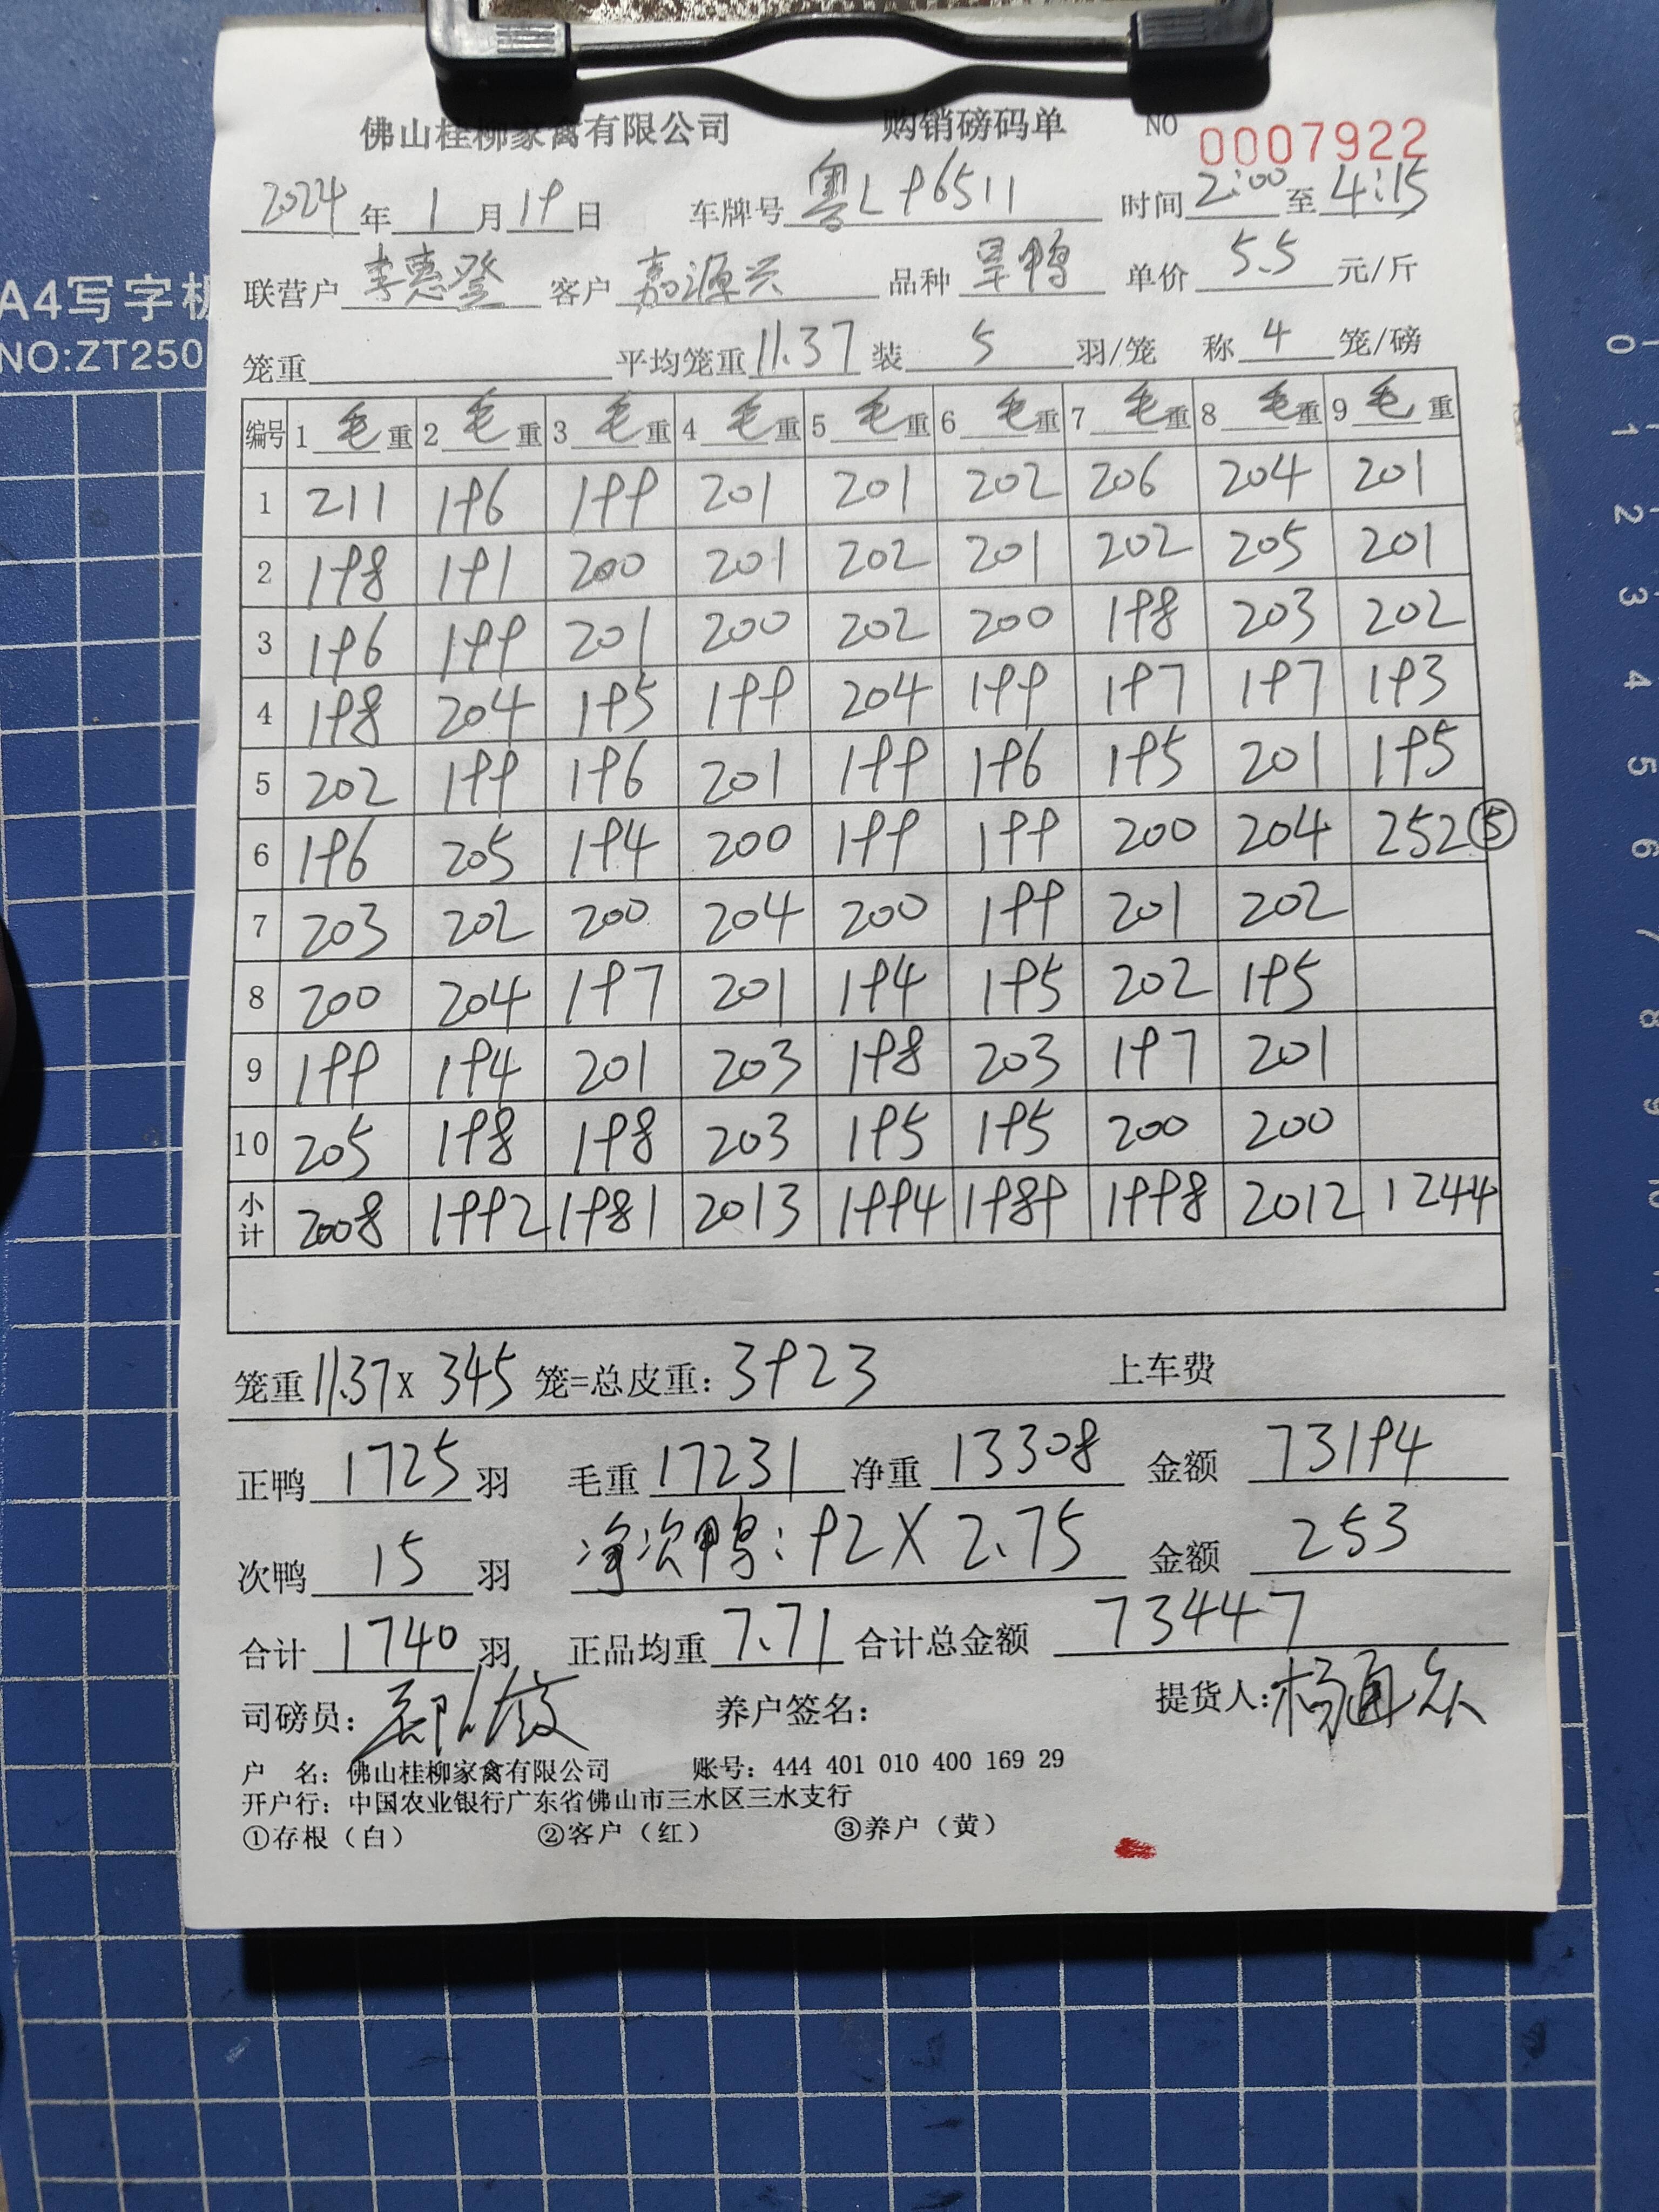 佛山桂柳家禽有限公司 购销磅码单 NO 0007922
2024 年 1 月 19 日 车牌号 粤L96511 时间 2:00 至 4:15
联营户 李惠登 客户 嘉源兴 品种 旱鸭 单价 5.5 元/斤
笼重 平均笼重 11.37 装 5 羽/笼 称 4 笼/磅
编号 1 毛重 2 毛重 3 毛重 4 毛重 5 毛重 6 毛重 7 毛重 8 毛重 9 毛重
1 211 196 199 201 201 202 206 204 201
2 198 191 200 201 202 201 202 205 201
3 196 199 201 200 202 200 198 203 202
4 198 204 195 199 204 199 197 197 193
5 202 199 196 201 199 196 195 201 195
6 196 205 194 200 199 199 200 204 252 ⑤
7 203 202 200 204 200 199 201 202
8 200 204 197 201 194 195 202 195
9 199 194 201 203 198 203 197 201
10 205 198 198 203 195 195 200 200
小计 2008 1992 1981 2013 1994 1989 1998 2012 1244
笼重 11.37 x 345 笼=总皮重: 3923 上车费
正鸭 1725 羽 毛重 17231 净重 13308 金额 73194
次鸭 15 羽 净次鸭: 92 X 2.75 金额 253
合计 1740 羽 正品均重 7.71 合计总金额 73447
司磅员: 养户签名: 提货人: 杨通众
户 名: 佛山桂柳家禽有限公司 账号: 444 401 010 400 169 29
开户行: 中国农业银行广东省佛山市三水区三水支行
①存根（白） ②客户（红） ③养户（黄）
A4写字板
NO:ZT250
0
1
2
3
4
5
6
7
8
9
10